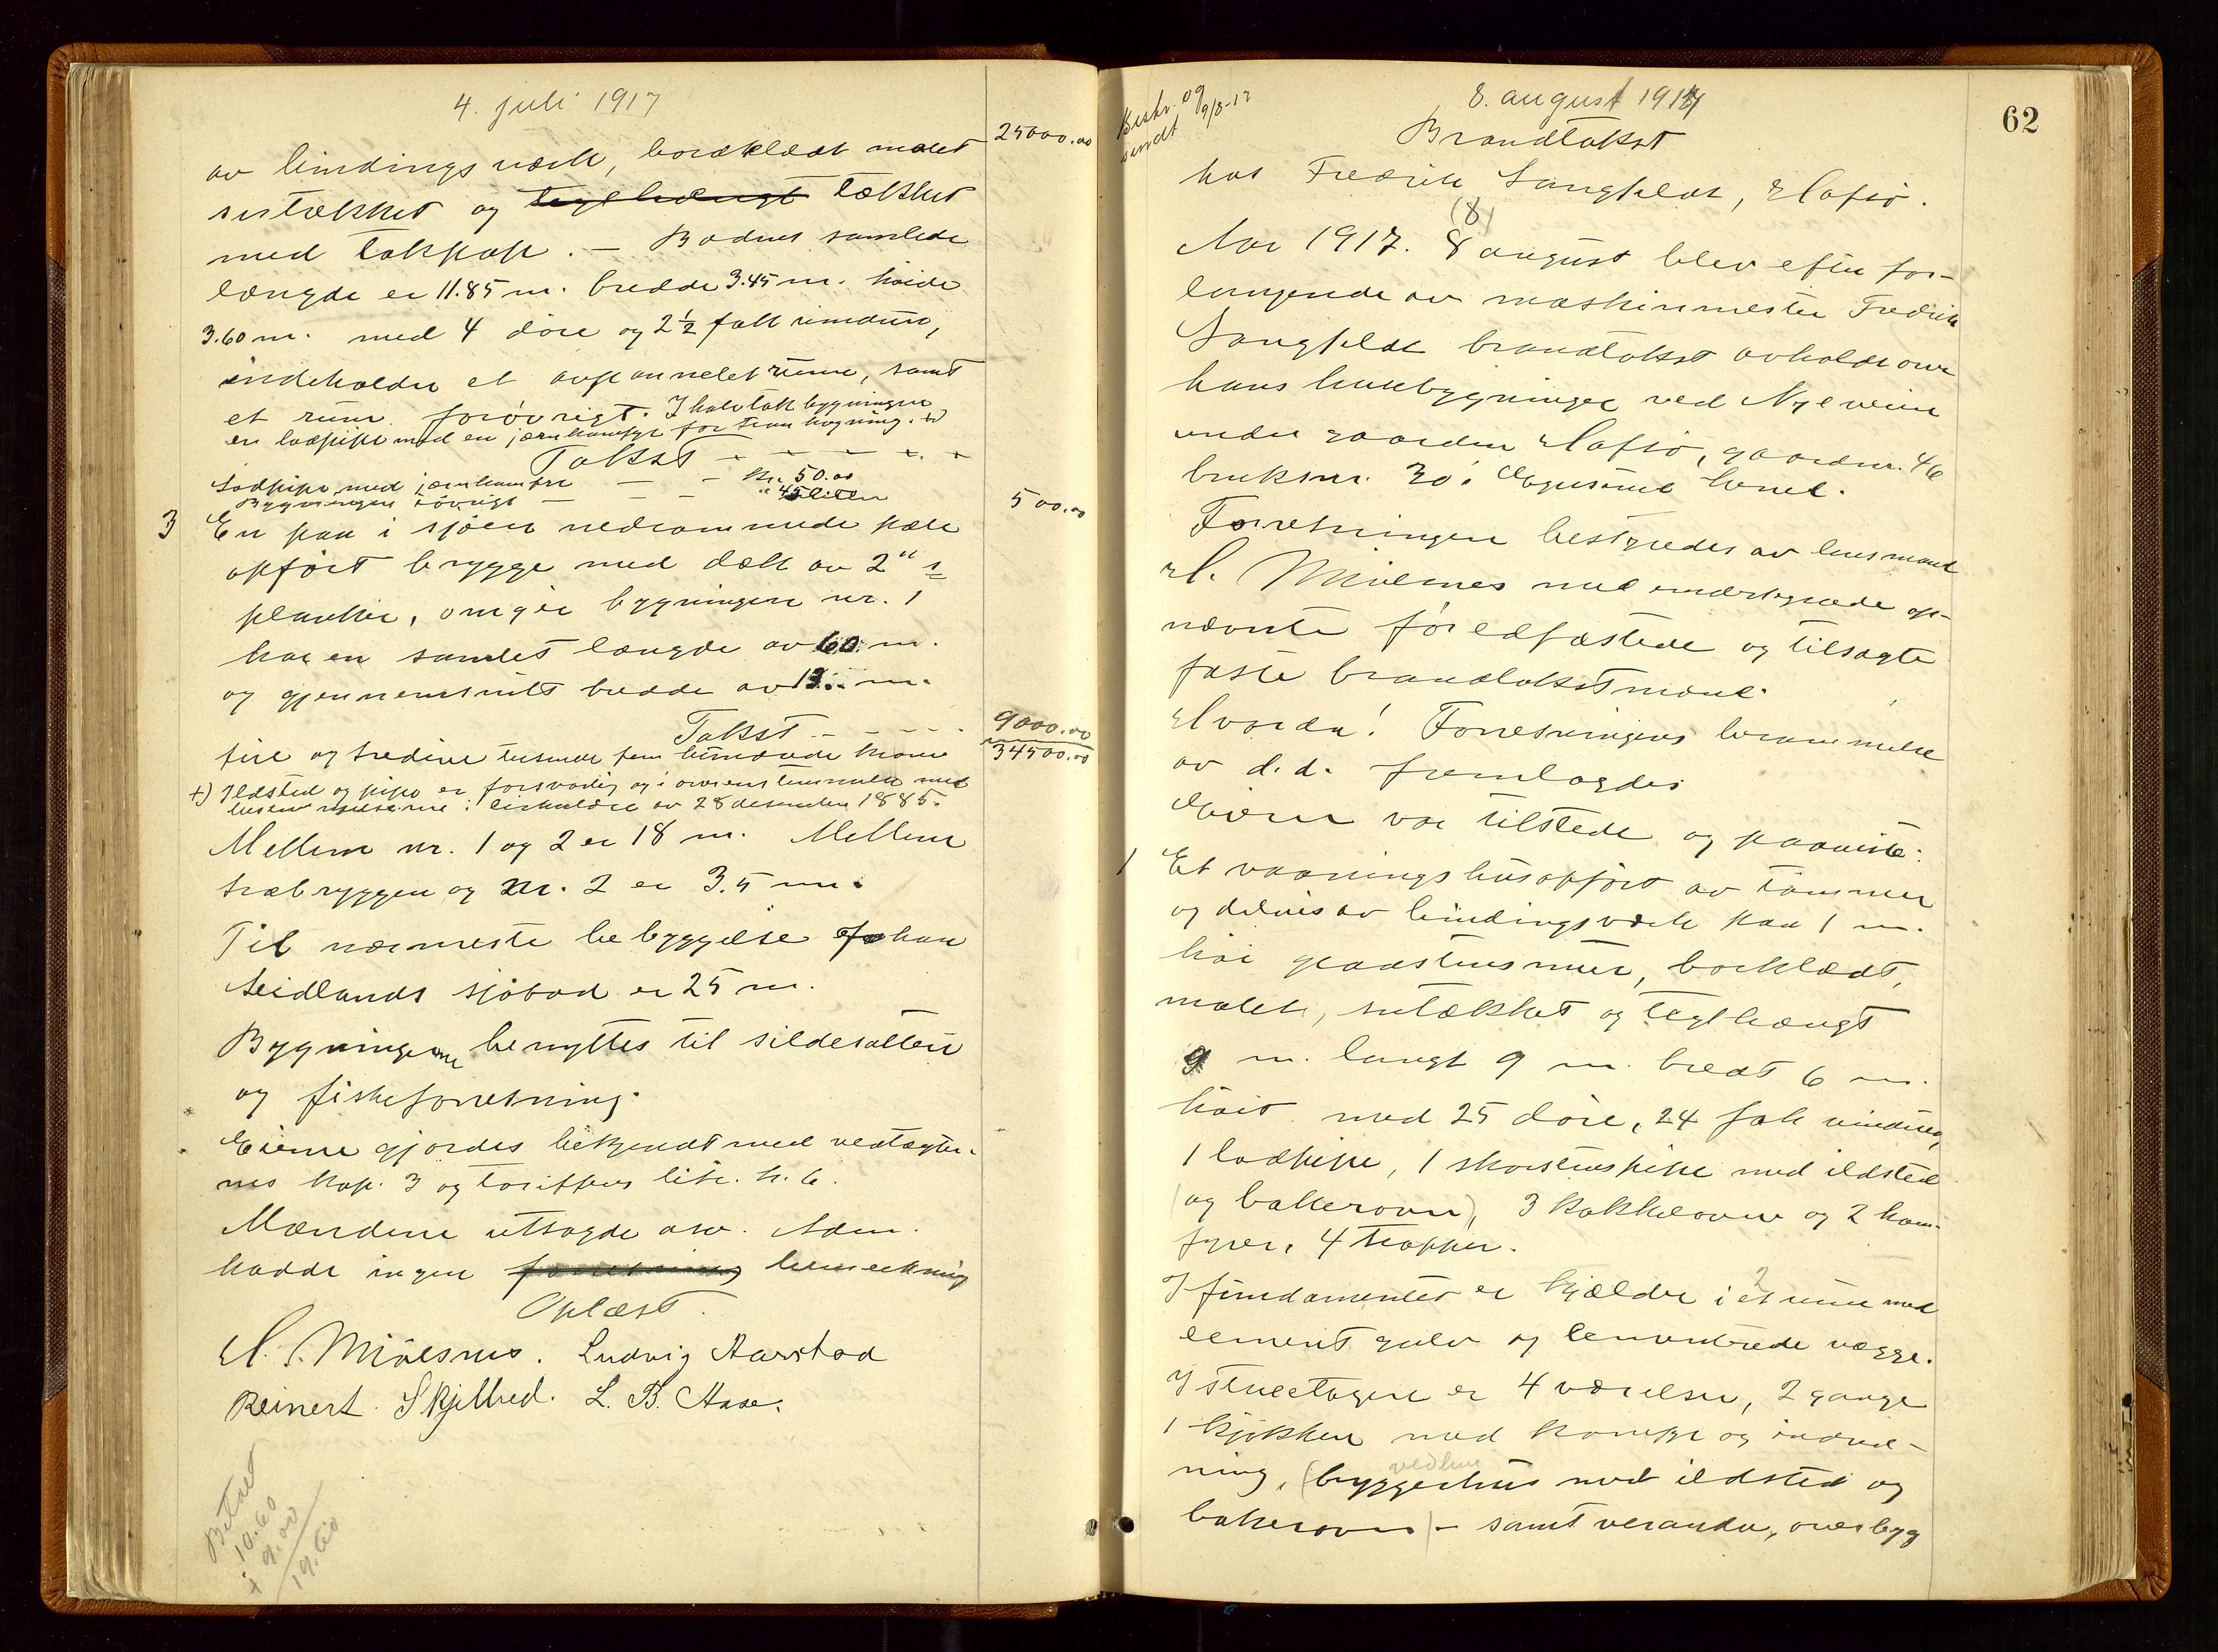 4. juli 1917
25000.00
av bindingsverk, bordklædt malet
sutækket og teglhængt tækket
med takpap. – Bodens samlede
længde er 11.85 m. bredde 3.45 m. høide
3.60 m. med 4 döre og 2½ fak vinduer,
indeholder et avpannelet rum, samt
et rum forövrigt. I halvtakbygningen
en lodpipe med en jernkomfyr for tran kogning. +)
Takst
Lodpipe med jernkomfyr – – Kr. 50.00
Bygningen iövrigt – – – " 450.00
500.00
3 En paa i sjöen nedrammede pæle
opfört brygge med dæk av 2" s
planker, omgir bygningen nr. 1
har en samlet længde av 60 m.
og gjennemsnits bredde av 13 m.
Takst – – – –
9000.00
fire og tredive tusende fem hundrede kroner
34500.00
+) Ildsted og pipe er forsvarlig og i overensstemmelse med
bestemmelserne i cirkulære av 28 desember 1885.
Mellem nr. 1 og 2 er 18 m. Mellem
træbryggen og nr. 2 er 3.5 m.
Til nærmeste bebyggelse Johan
Seidlands sjöbod er 25 m.
Bygningerne benyttes til sildesalteri
og fiskeforretning.
Eierne gjordes bekjendt med vedtægter-
nes kap. 3 og tariffens litr. h. 6.
Mændene uttagde osv. Adm.
hadde ingen forretning bemerkning
Oplæst.
H. S. Miölsnes. Ludvig Aarstad
Reinert Skjelbred. L. B. Aase.
Betalt
10.60
+ 9.00
19.60
62
Beskr. og
sendt 9/8-17
8. august 1917
Brandtakst
hos Fredrik Langfeldt, Hafsö.
Aar 1917. 8 (8) august blev efter for-
langende av maskinmester Fredrik
Langfeldt brandtakst avholdt over
hans husebygninger ved Nyeveien
under gaarden Hafsö, gaardsnr. 46
bruksnr. 30 i Egersund herred.
Forretningen bestyredes av lensmand
H. Miölsnes med undertegnede op-
nævnte för edfæstede og tilsagte
faste brandtakstmænd.
Hvorda! Forretningens berammelse
av d.d. fremlagdes
Eieren var tilstede og paaviste:
1 Et vaaningshus opfört av tömmer
og delvis av bindingsverk paa 1 m.
höi graastensmur, bordklædt,
malet, sutækket og teglhængt
9 m. langt 9 m. bredt 6 m.
höit med 25 döre, 24 fak vinduer,
1 lodpipe, 1 skorstenspipe med ildsted
(og bakerovn), 3 kakkelovne og 2 kom-
fyrer, 4 trapper.
I fundamentet er kjælder i et 2 rum med
cement gulv og cementerede vægge.
I stueetagen er 4 værelser, 2 gange
1 kjökken med komfyr og indred-
ning, (bryggerhus vedhus med ildsted og
bakerovn) – samt veranda, overbyg